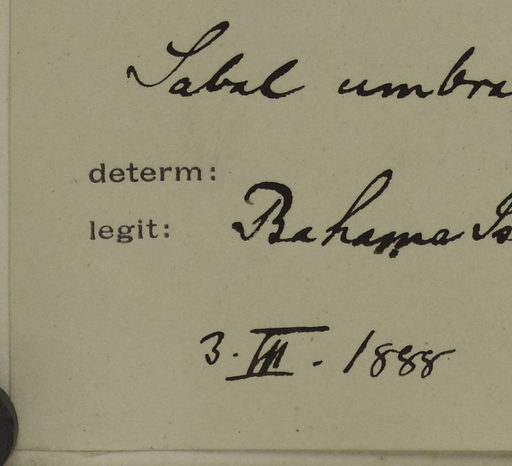 Sabal umbra
determ:
legit: Bahama Is
3. III. 1888